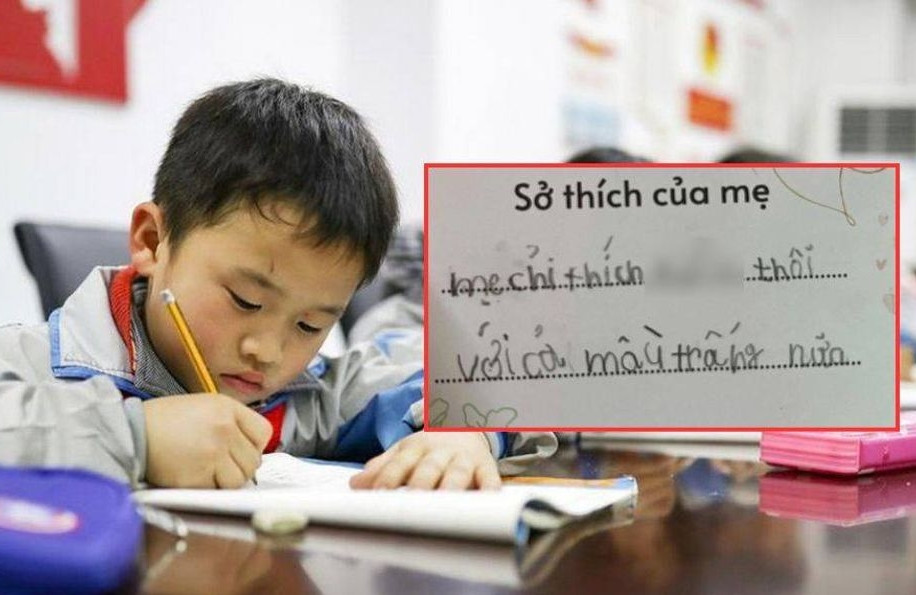 Sở thích của mẹ
mẹ chỉ thích thôi
với cả mầu trắng nữa